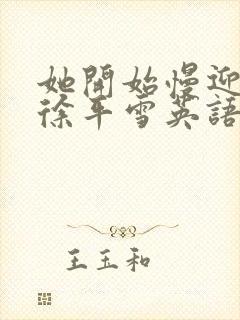 她開始慢迎
徐年雪英語
王玉和